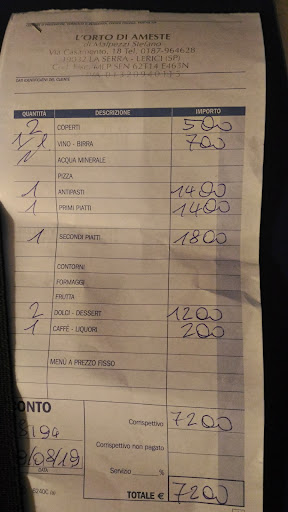 L'ORTO DI AMESTE
di Malpezzi Stefano
Via Casamento, 18 Tel. 0187-964628
19032 LA SERRA - LERICI (SP)
QUANTITÀ DESCRIZIONE IMPORTO
2 COPERTI 500
1/2 l VINO - BIRRA 700
1 ACQUA MINERALE
PIZZA
1 ANTIPASTI 1400
1 PRIMI PIATTI 1400
1 SECONDI PIATTI 1800
CONTORNI
FORMAGGI
FRUTTA
2 DOLCI - DESSERT 1200
1 CAFFÈ - LIQUORI 200
MENÙ A PREZZO FISSO
CONTO
Corrispettivo 7200
Corrispettivo non pagato
/08/19
DATA
Servizio %
TOTALE € 7200